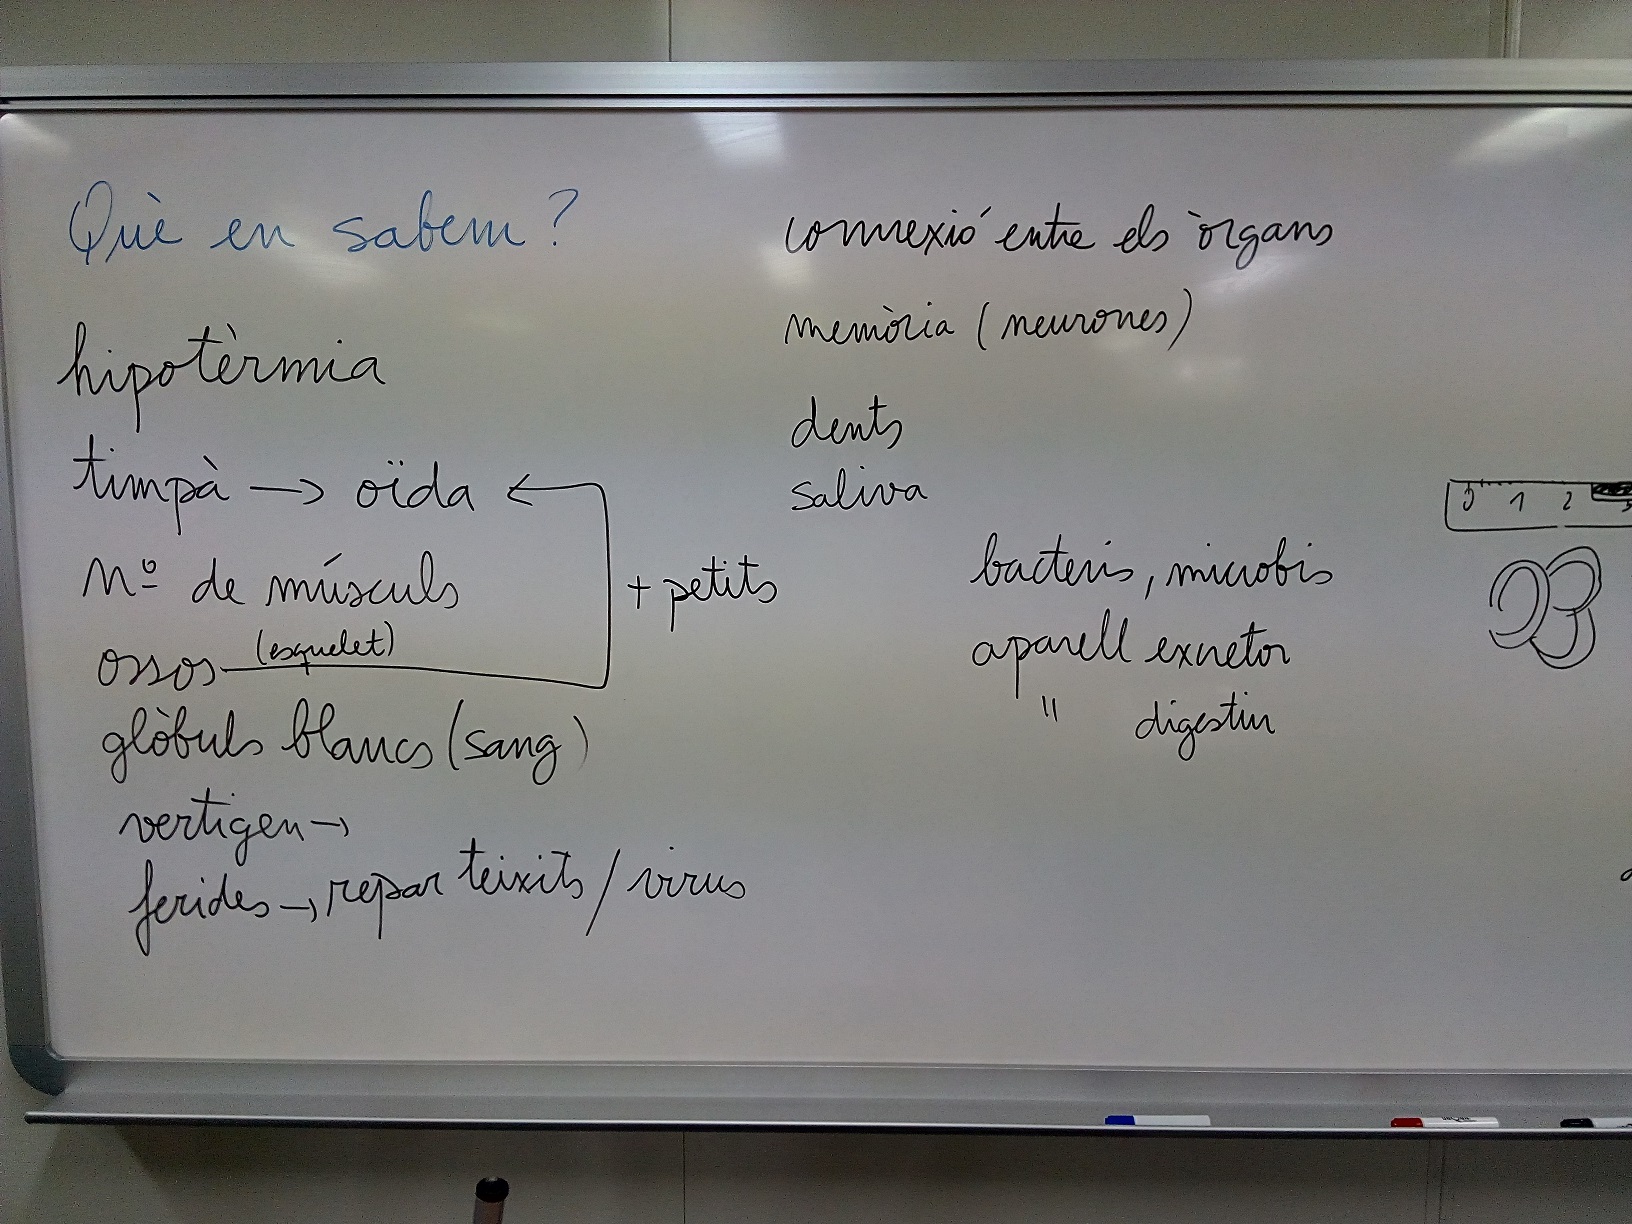 Què en sabem?
hipotèrmia
timpà → oïda ←
Nº de músculs
+ petits
(esquelet)
ossos
glòbuls blancs (sang)
vertigen →
ferides → repar teixits / virus
connexió entre els òrgans
memòria (neurones)
dents
saliva
bacteris, microbis
aparell excretor
" digestiu
0 1 2 3